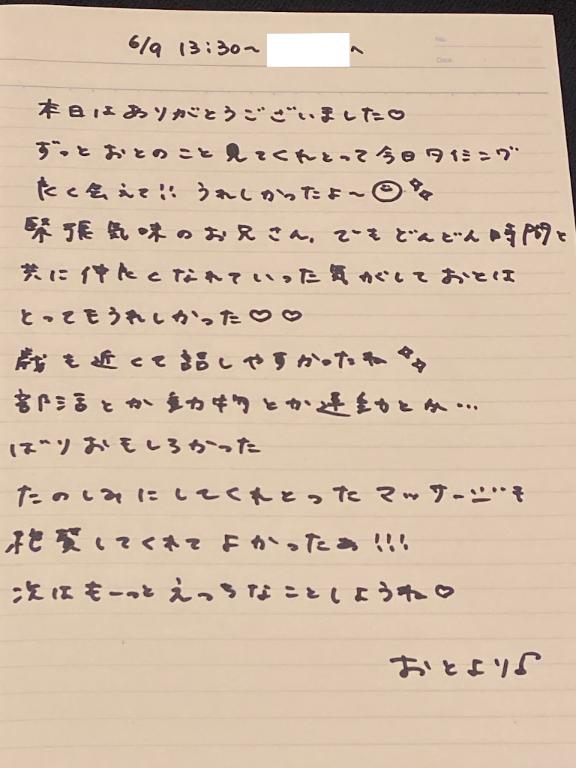 6/9 13:30〜 へ
No.
Date
本日はありがとうございました♡
ずっとおとのこと見てくれとって今日タイミング
たく会えて!! うれしかったよ〜
緊張気味のお兄さん、でもどんどん時間と
共に仲たくなれていった気がしておとは
とってもうれしかった♡♡
歳も近くて話しやすかったね
部活とか動物とか運動とか…
ばりおもしろかった
たのしみにしてくれとったマッサージも
絶賛してくれてよかったぁ!!!
次はもーっとえっちなことしようね♡
おとより♪